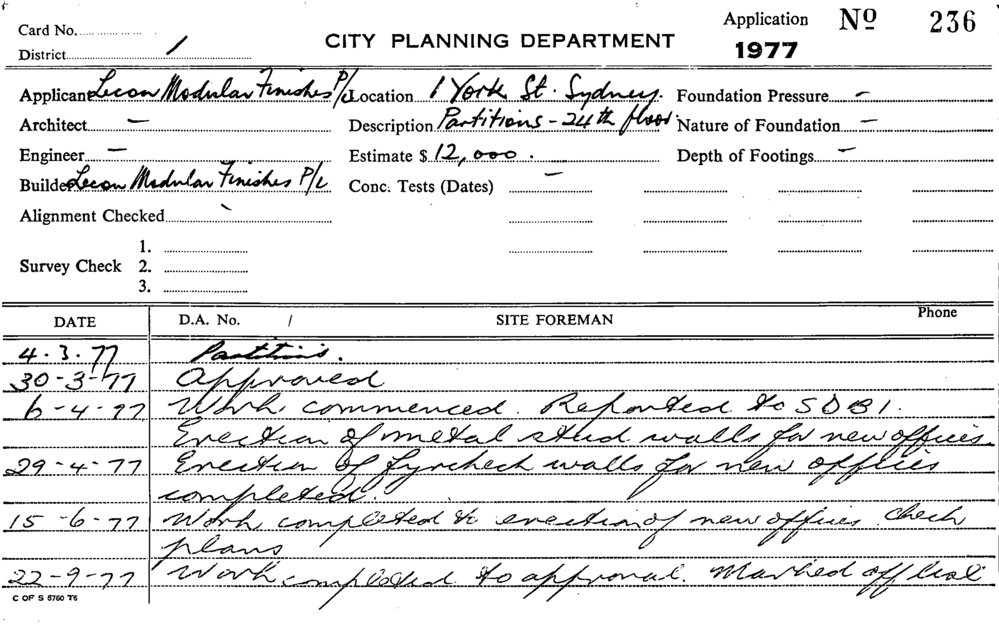 Card No. Application Nº 236
District 1 CITY PLANNING DEPARTMENT 1977
Applicant Lecon Modular Finishes P/L Location 1 York St. Sydney. Foundation Pressure –
Architect – Description Partitions – 24th floor. Nature of Foundation –
Engineer – Estimate $ 12,000. Depth of Footings –
Builder Lecon Modular Finishes P/L Conc. Tests (Dates) –
Alignment Checked
1.
Survey Check 2.
3.
DATE D.A. No. / SITE FOREMAN Phone
4.3.77 Partitions.
30-3-77 Approved
6-4-77 Work commenced. Reported to SDB1.
Erection of metal stud walls for new offices
29-4-77 Erection of fyrcheck walls for new offices
completed.
15-6-77 Work completed to erection of new offices check
plans
22-9-77 Work completed to approval. Marked off
C OF S 5760 T6